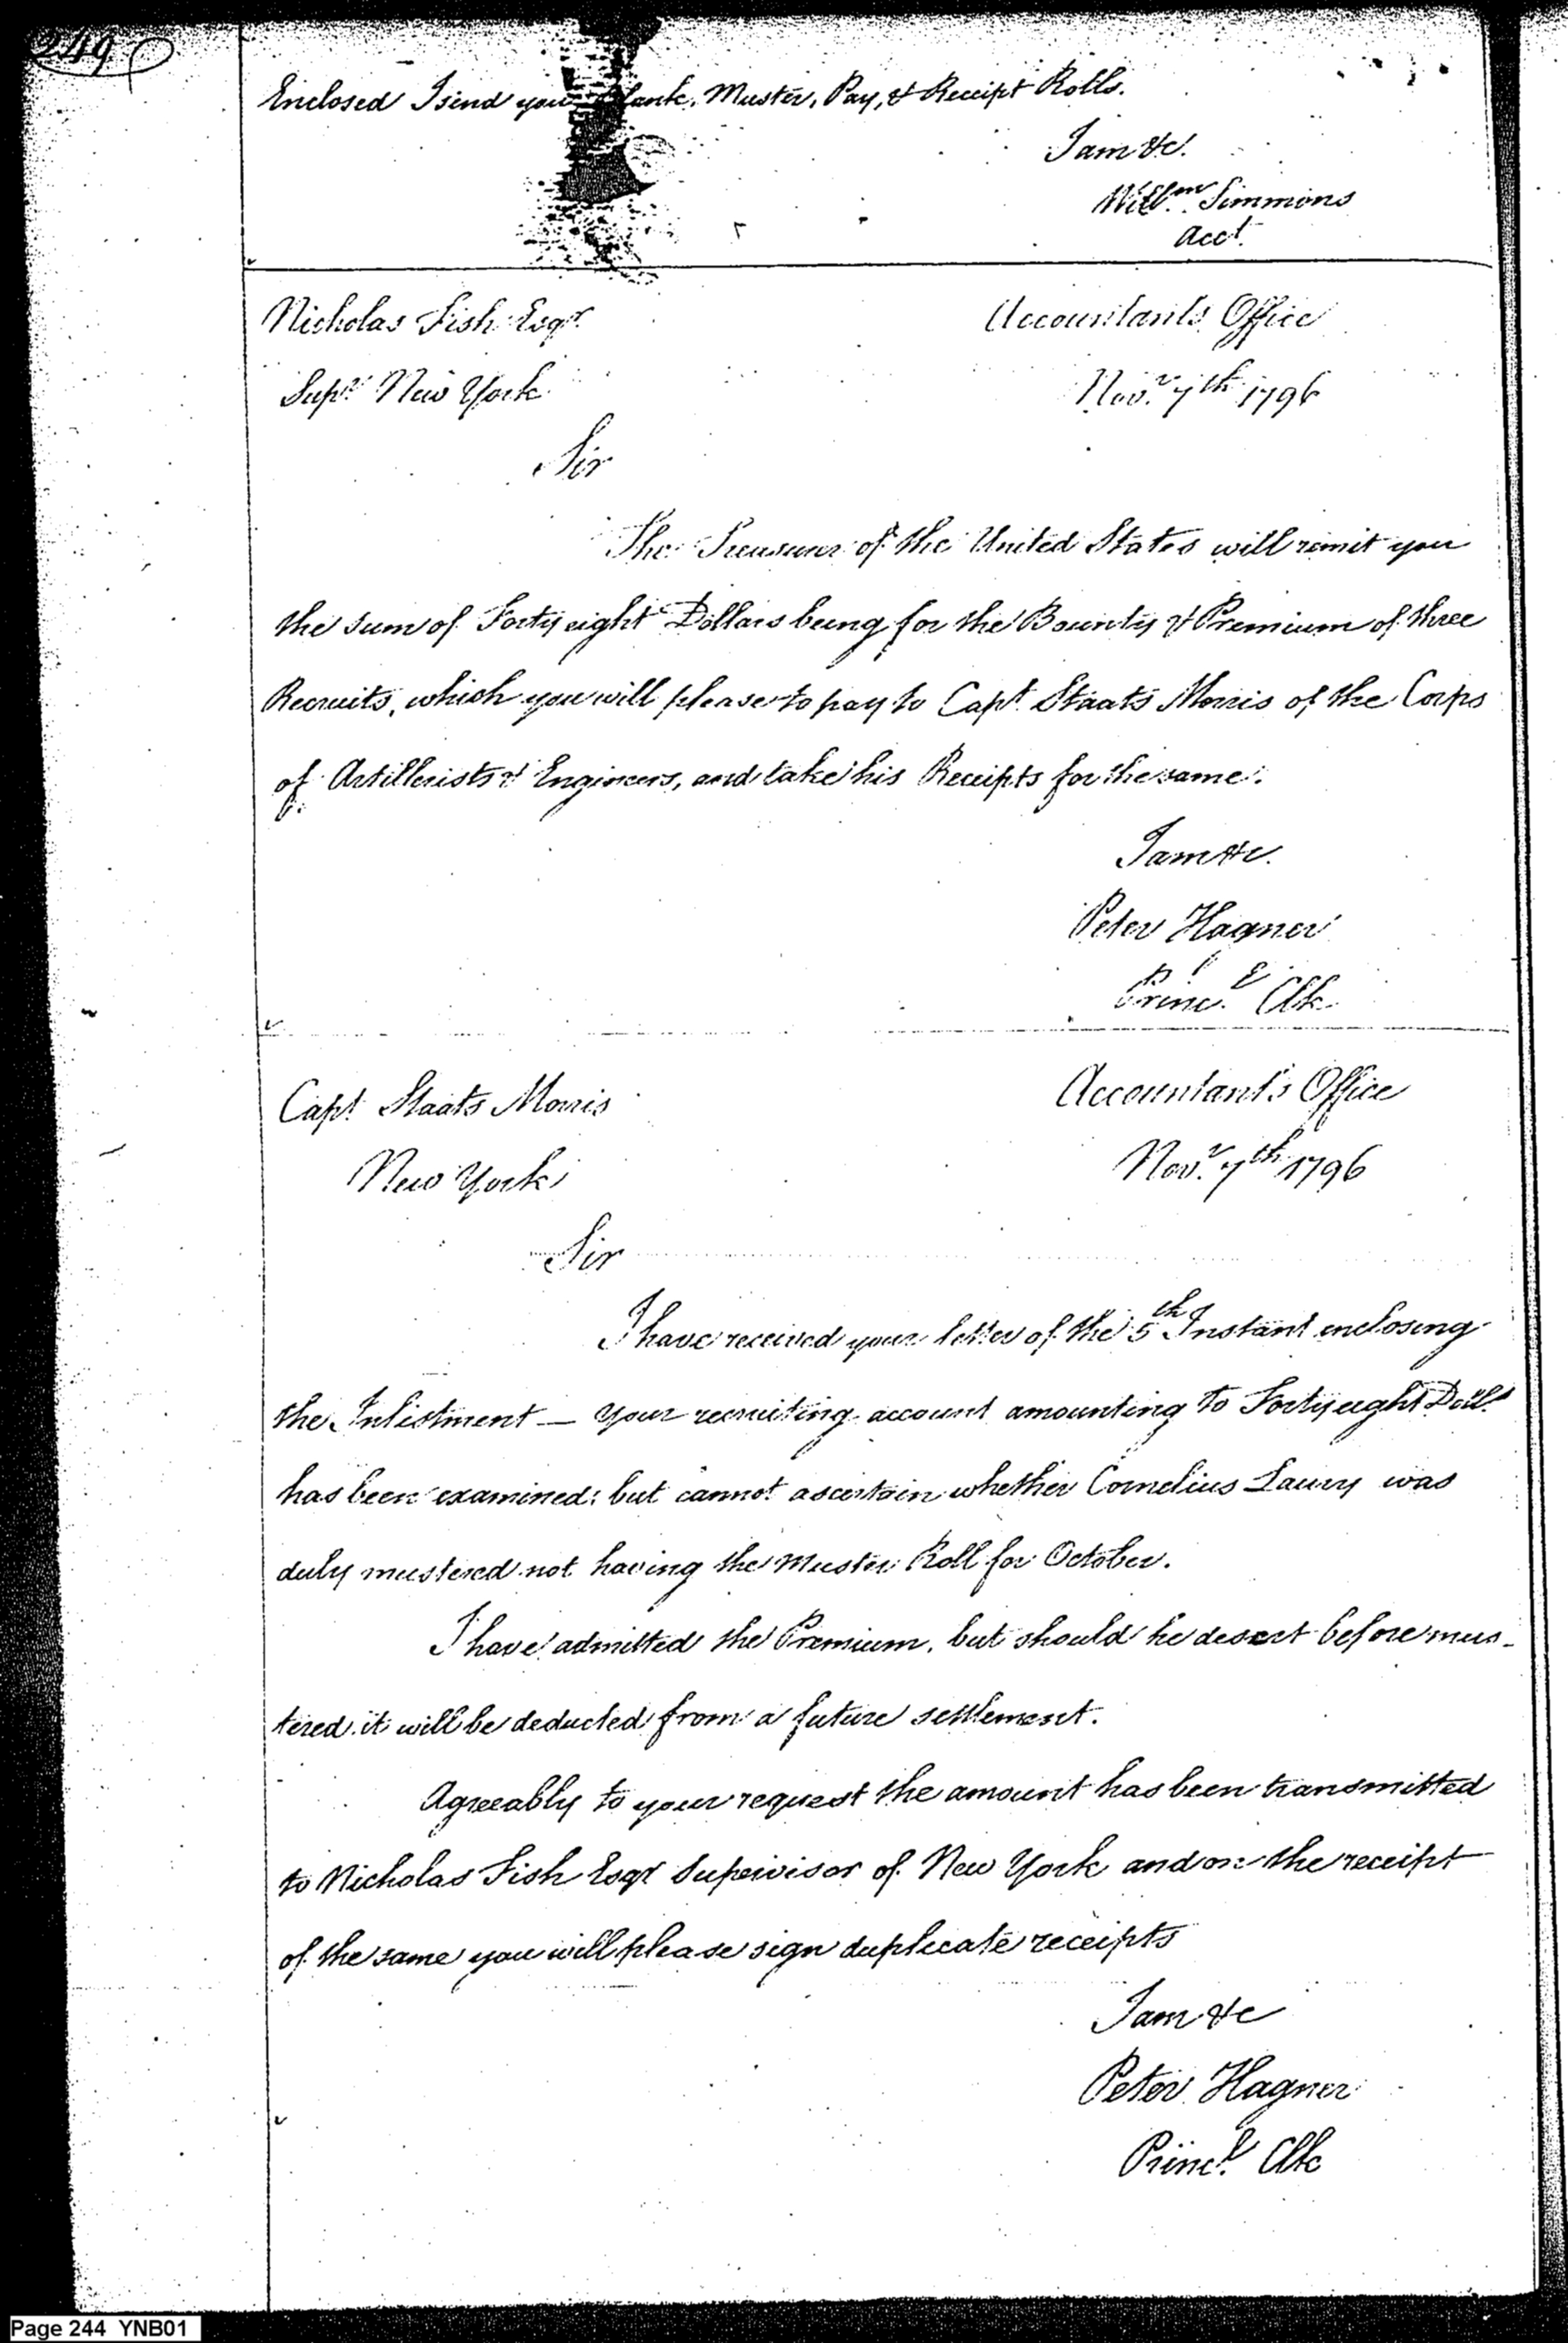 249
Enclosed I send you Blank, Muster, Pay, & Receipt Rolls.
I am &c.
Willm. Simmons
Acct.
Nicholas Fish Esqr.
Accountants Office
Supr. New York
Novr. 7th 1796
Sir
The Treasurer of the United States will remit you
the sum of Forty eight Dollars being for the Bounty & Premium of three
Recruits, which you will please to pay to Capt. Staats Morris of the Corps
of Artillerists & Engineers, and take his Receipts for the same.
I am &c.
Peter Hagner
Princl. Clk.
Capt Staats Morris
Accountant's Office
New York
Novr. 7th 1796
Sir
I have received your letter of the 5th Instant enclosing
the Inlistment — your recruiting account amounting to Forty eight Dolls.
has been examined: but cannot ascertain whether Cornelius Laury was
duly mustered not having the Muster Roll for October.
I have admitted the Premium, but should he desert before mus-
tered it will be deducted from a future settlement.
Agreeably to your request the amount has been transmitted
to Nicholas Fish Esqr Supervisor of New York and on the receipt
of the same you will please sign duplicate receipts
I am &c
Peter Hagner
Princl. Clk
Page 244 YNB01